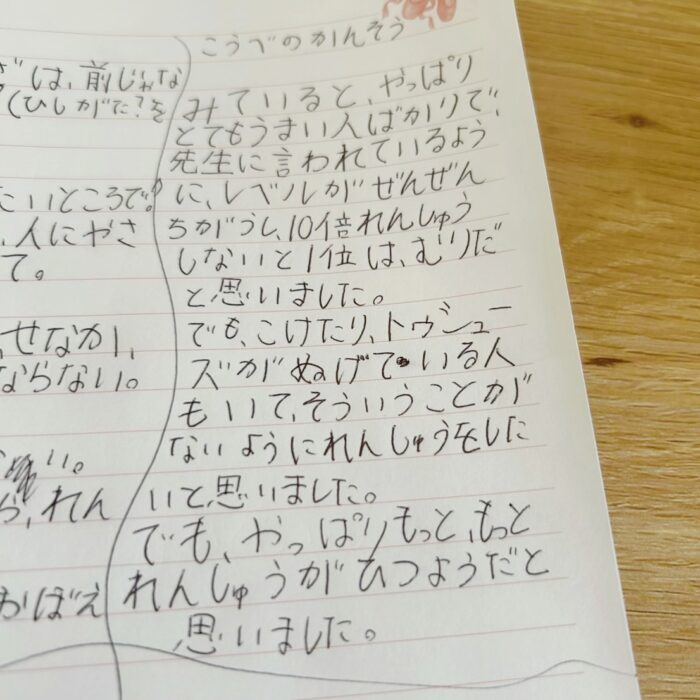 こうべのかんそう
みていると、やっぱり
とてもうまい人ばかりで、
先生に言われているよう
に、レベルがぜんぜん
ちがうし、10倍れんしゅう
しないと1位は、むりだ
と思いました。
でも、こけたり、トウシュー
ズがぬげている人
もいて、そういうことが
ないようにれんしゅうをした
いと思いました。
でも、やっぱりもっと、もっと
れんしゅうがひつようだと
思いました。
は、前じゃな
(ひしがた?を
たいところで。
、人にやさ
て。
、せなか、
ならない。
い。
ら、れん
おぼえ